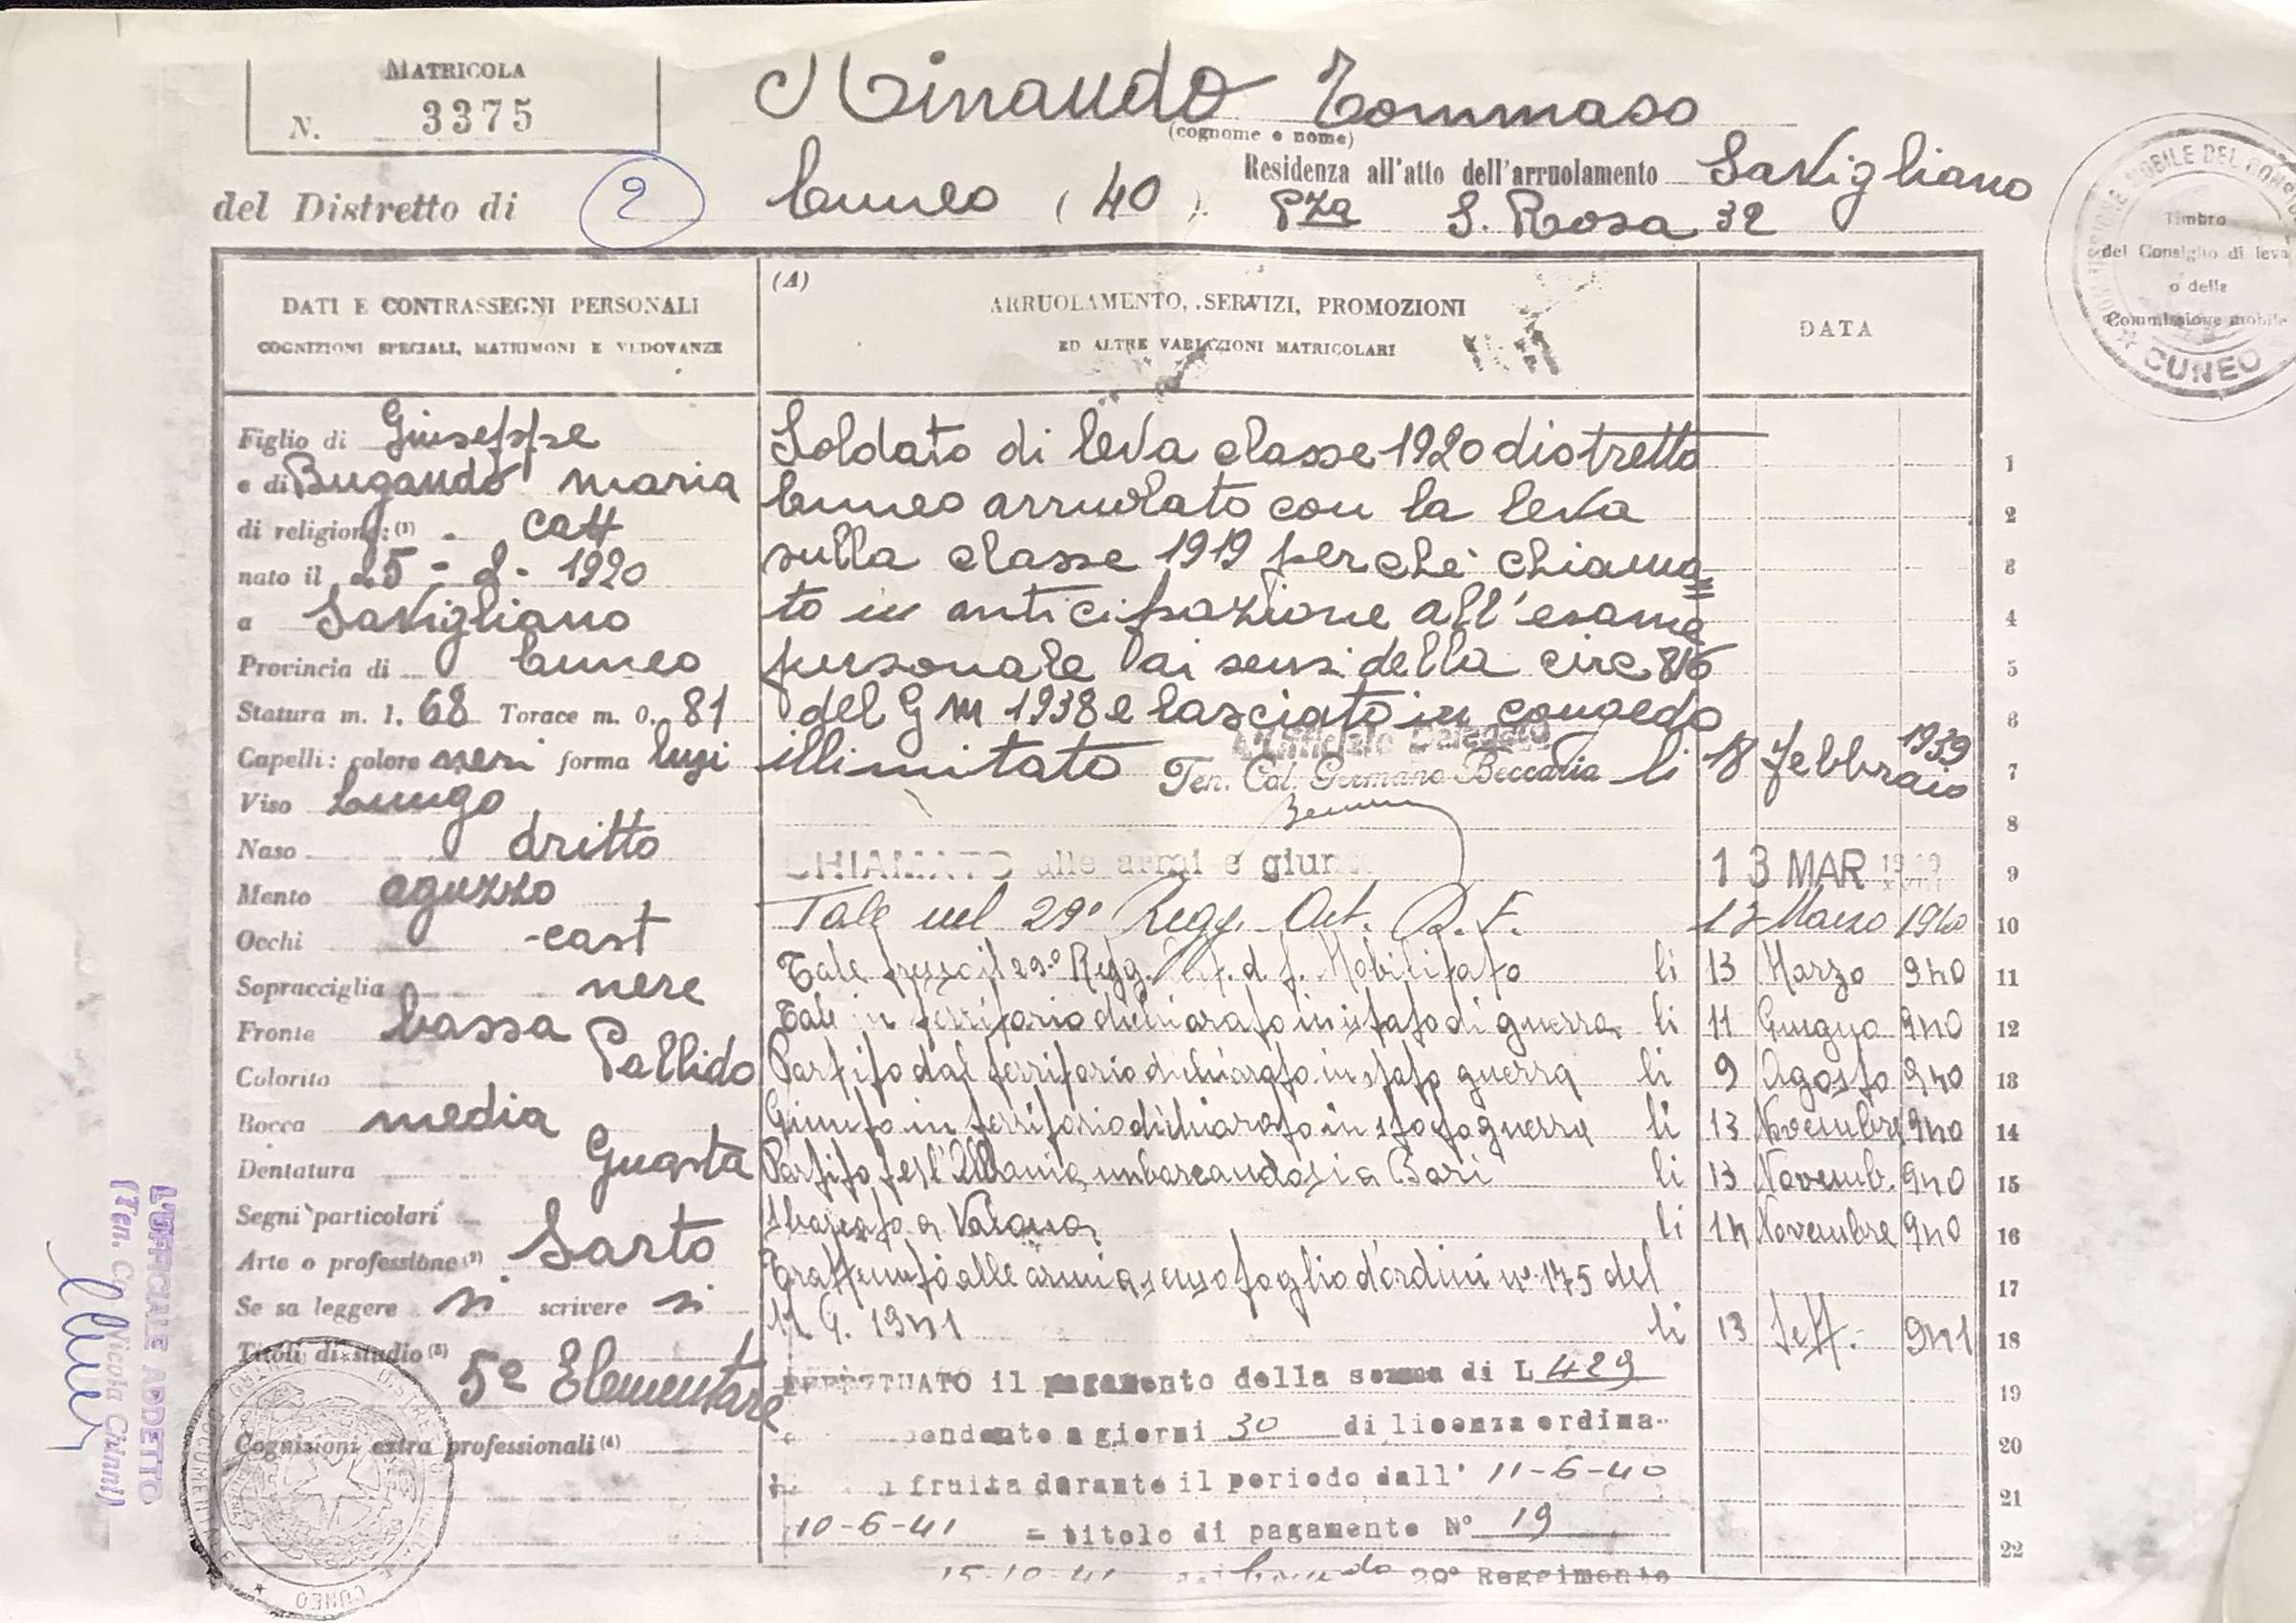 MATRICOLA
N. 3375
Rinaudo Tommaso
(cognome e nome)
del Distretto di 2 Cuneo (40)
Residenza all'atto dell'arruolamento Savigliano
Pza S. Rosa 32
Timbro
del Consiglio di leva
o della
Commissione mobile
CUNEO
DATI E CONTRASSEGNI PERSONALI
COGNIZIONI SPECIALI, MATRIMONI E VEDOVANZE
Figlio di Giuseppe
e di Bugaudo Maria
di religione: (1) catt
nato il 25-2-1920
a Savigliano
Provincia di Cuneo
Statura m. 1. 68 Torace m. 0. 81
Capelli: colore neri forma lisci
Viso Lungo
Naso dritto
Mento aguzzo
Occhi cast
Sopracciglia nere
Fronte bassa
Colorito Pallido
Bocca media
Dentatura Guasta
Segni particolari
Arte o professione Sarto
Se sa leggere si scrivere si
Titoli di studio 5ª Elementare
Cognizioni extra professionali (4)
(A)
ARRUOLAMENTO, SERVIZI, PROMOZIONI
ED ALTRE VARIAZIONI MATRICOLARI
DATA
Soldato di leva classe 1920 distretto 1
Cuneo arruolato con la leva 2
sulla classe 1919 perchè chiama= 3
to in anticipazione all'esame 4
personale ai sensi della circ 5
del G M 1938 e lasciato in congedo 6
illimitato li 18 Febbraio 1939 7
L'Ufficiale Delegato
Ten. Col. Germano Beccaria
8
CHIAMATO alle armi e giunto 13 MAR 9
Tale nel 29° Regg. Art. D.F. 13 Marzo 1940 10
Tale presso il 29° Regg. Art. d. f. Mobilitato li 13 Marzo 940 11
Tale in territorio dichiarato in istato di guerra li 11 Giugno 940 12
Partito dal territorio dichiarato in stato guerra li 9 Agosto 940 13
Giunto in territorio dichiarato in stato guerra li 13 Novembre 940 14
Partito per l'Albania imbarcandosi a Bari li 13 Novemb. 940 15
Sbarcato a Valona li 14 Novembre 940 16
Trattenuto alle armi a senso foglio d'ordini n° 175 del 17
G. 1941 li 13 Sett. 941 18
EFFETTUATO il pagamento della somma di L 429 19
giorni 30 di licenza ordina- 20
fruita durante il periodo dall' 11-6-40 21
10-6-41 = titolo di pagamento N° 19 22
15-10-41 29° Reggimento
L'UFFICIALE ADDETTO
DISTRETTO
CUNEO